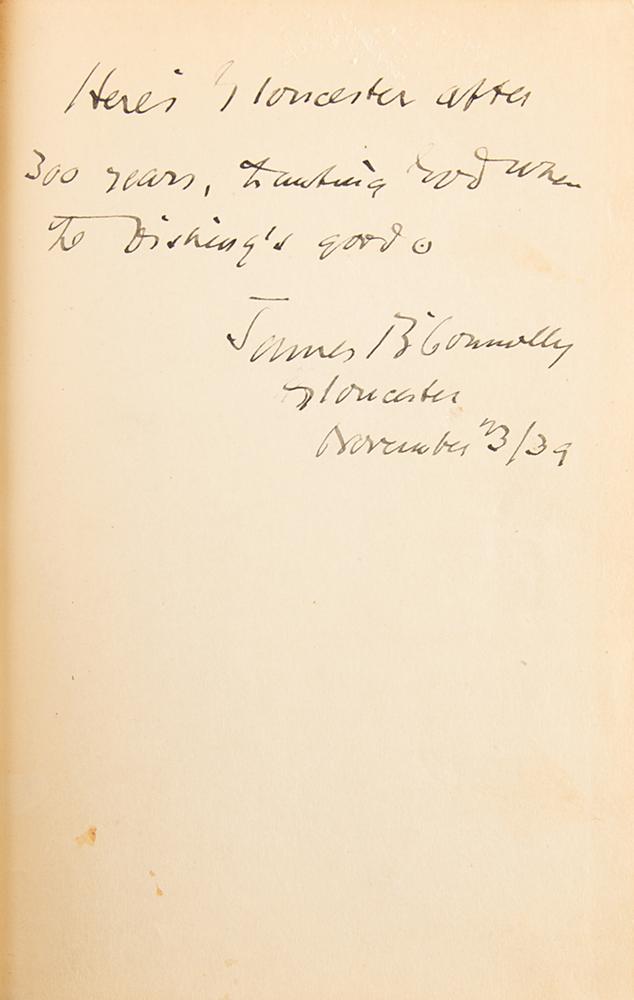 Here's Gloucester after
300 years, thanking God when
the fishing's good.
James B Connolly
Gloucester
November 23/39